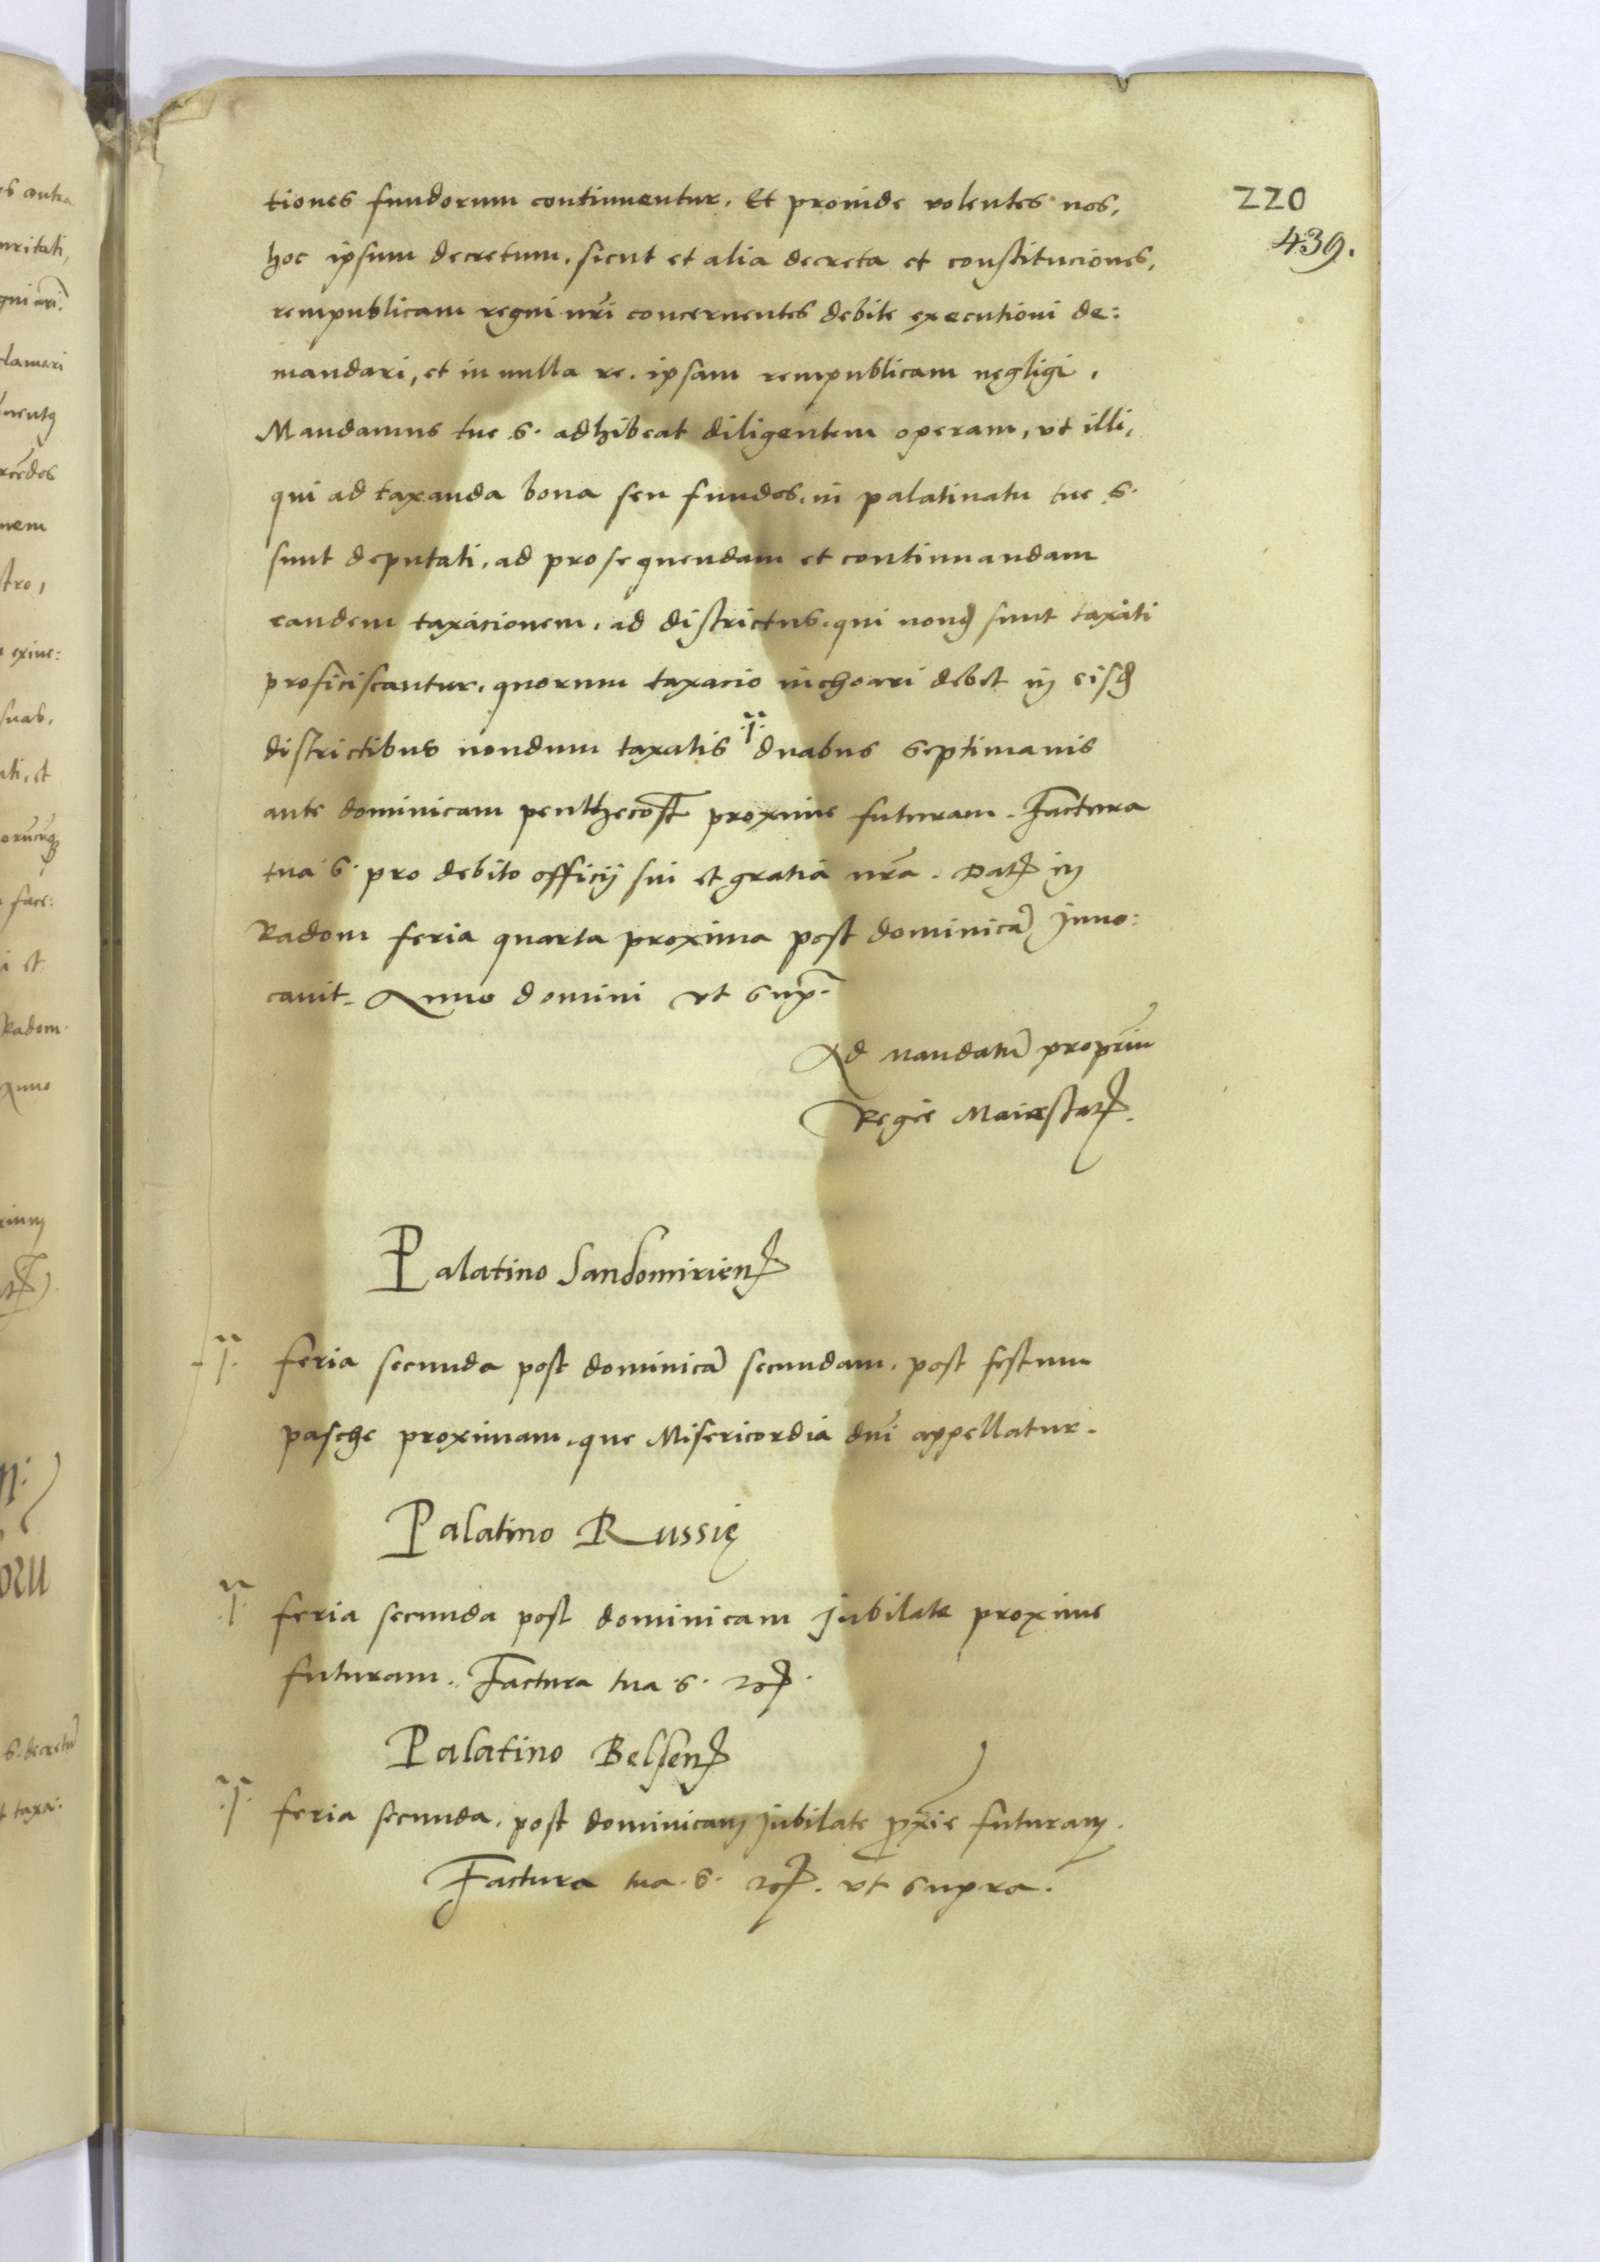 220
439.
tiones fundorum continuentur. Et proinde volentes nos,
hoc ipsum decretum, sicut et alia decreta et constituciones,
rempublicam regni nri concernentes debite executioni de:
mandari, et in nulla re. ipsam rempublicam negligi,
Mandamus tue S. adhibeat diligentem operam, vt illi,
qui ad taxanda bona seu fundos, in palatinatu tue S.
sunt deputati, ad prosequendam et continuandam
eandem taxacionem, ad districtus, qui nond sunt taxati
proficiscantur, quorum taxacio inchoari debet in eisd
districtibus nondum taxatis duabus septimanis
ante dominicam penthecost proxime futuram. Factura
tua S. pro debito officij sui et gratia nra. Dat in
Radom feria quarta proxima post dominica Inuo:
cauit. Anno domini vt sup.
Ad mandatu propriu
Regie Maiestat.
Palatino Sandomirien
feria secunda post dominica secundam, post festum
pasche proximam, que Misericordia dni appellatur.
Palatino Russię
feria secunda post dominicam Jubilate proxime
futuram. Factura tua S.
Palatino Belsen
feria secunda, post dominicam Jubilate pxie futuram.
Factura tua S. vt supra.